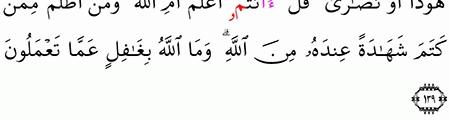 هُودًا أَوْ نَصَٰرَىٰ قُلْ ءَا۬نتُمُۥ أَعْلَمُ أَمِ اِ۬للَّهُ وَمَنْ أَظْلَمُ مِمَّن
كَتَمَ شَهَٰدَةً عِندَهُۥ مِنَ اَ۬للَّهِۗ وَمَا اَ۬للَّهُ بِغَٰفِلٍ عَمَّا تَعْمَلُونَ
١٣٩